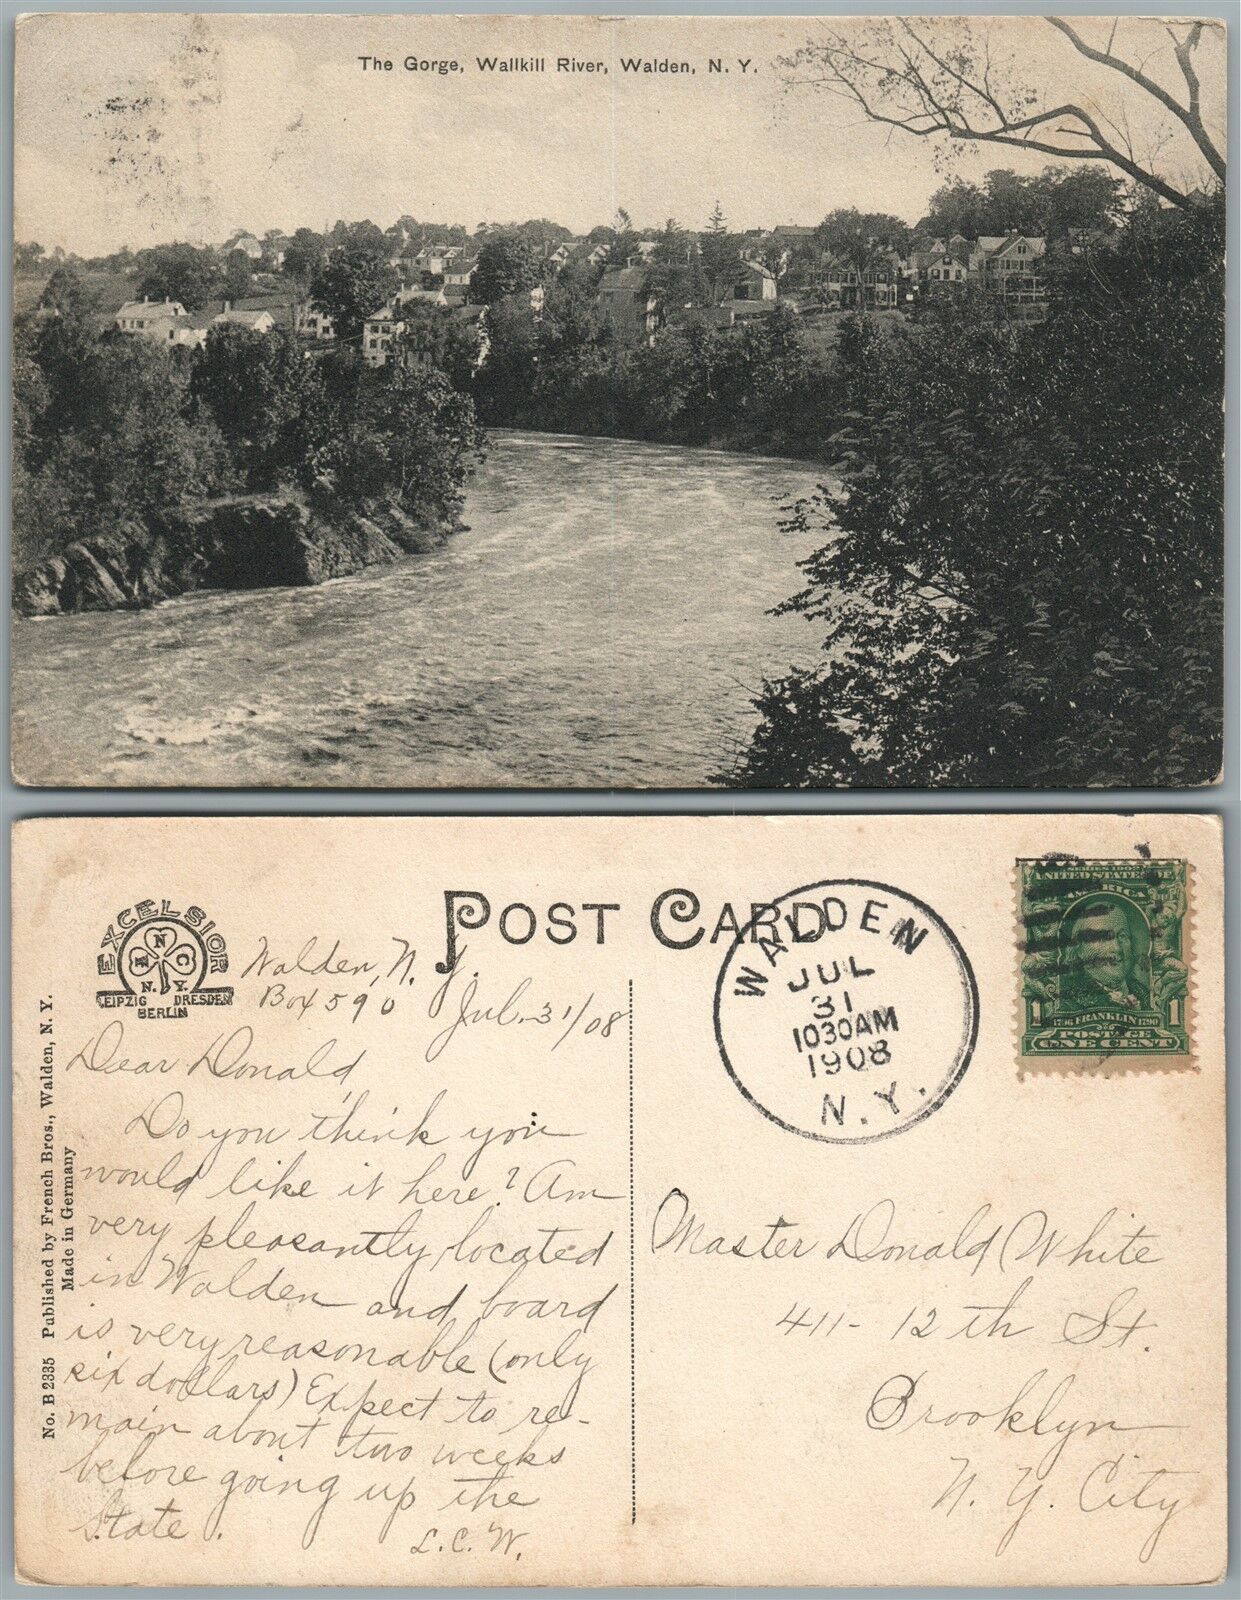 The Gorge, Wallkill River, Walden, N. Y.
EXCELSIOR
N
N C
N. Y.
LEIPZIG DRESDEN
BERLIN
POST CARD
WALDEN
JUL
31
1030AM
1908
N.Y.
SERIES 1902
UNITED STATES OF
AMERICA
1 1706 FRANKLIN 1790 1
POSTAGE
ONE CENT
No. B 2335 Published by French Bros., Walden, N. Y.
Made in Germany
Walden, N. Y.
Box 590 Jul. 31/08
Dear Donald,
Do you think you
would like it here? Am
very pleasantly located
in Walden and board
is very reasonable (only
six dollars) Expect to re-
main about two weeks
before going up the
State.
L.C.W.
Master Donald White
411- 12th St.
Brooklyn
N. Y. City